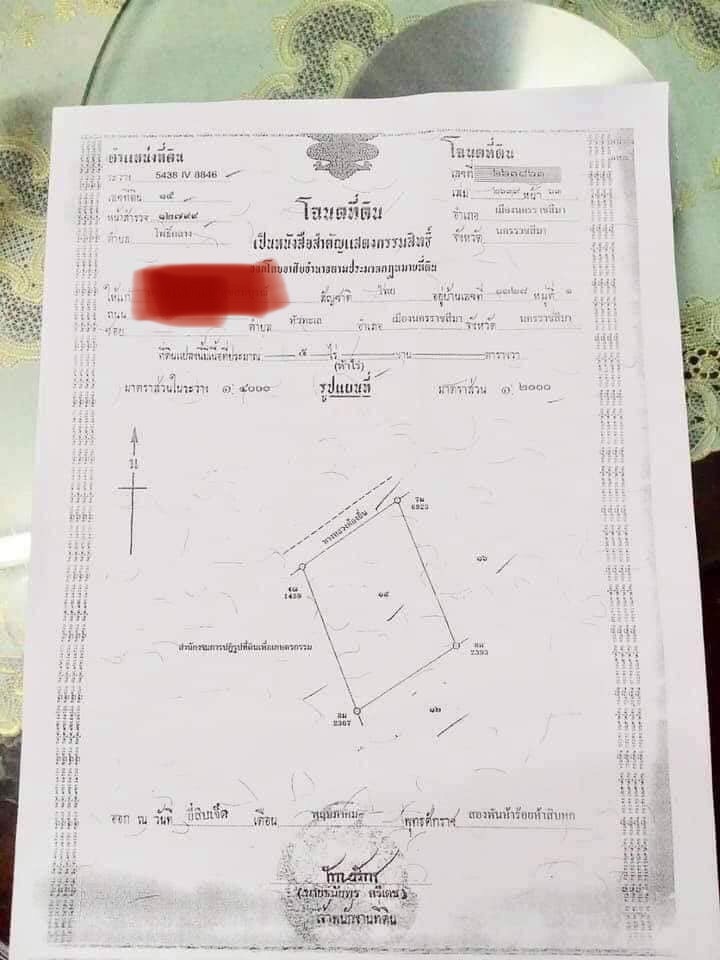 ตำแหน่งที่ดิน
ระวาง 5438 IV 8846
เลขที่ดิน ๑๕
หน้าสำรวจ ๑๒๗๙๙
ตำบล โพธิ์กลาง
โฉนดที่ดิน
เลขที่
เล่ม หน้า
อำเภอ เมืองนครราชสีมา
จังหวัด นครราชสีมา
โฉนดที่ดิน
เป็นหนังสือสำคัญแสดงกรรมสิทธิ์
ออกโดยอาศัยอำนาจตามประมวลกฎหมายที่ดิน
ให้แก่ สัญชาติ ไทย อยู่บ้านเลขที่ หมู่ที่ ๑
ถนน
ซอย ตำบล หัวทะเล อำเภอ เมืองนครราชสีมา จังหวัด นครราชสีมา
ที่ดินแปลงนี้มีเนื้อที่ประมาณ ๕ ไร่ งาน ตารางวา
(ห้าไร่)
มาตราส่วนในระวาง ๑:๔๐๐๐ รูปแผนที่ มาตราส่วน ๑:๒๐๐๐
น
ทางหลวงท้องถิ่น
6923
1459
๑๕
๑๖
สำนักงานการปฏิรูปที่ดินเพื่อเกษตรกรรม
2393
2367
๑๒
ออก ณ วันที่ ยี่สิบเจ็ด เดือน พฤษภาคม พุทธศักราช สองพันห้าร้อยห้าสิบหก
เจ้าพนักงานที่ดิน